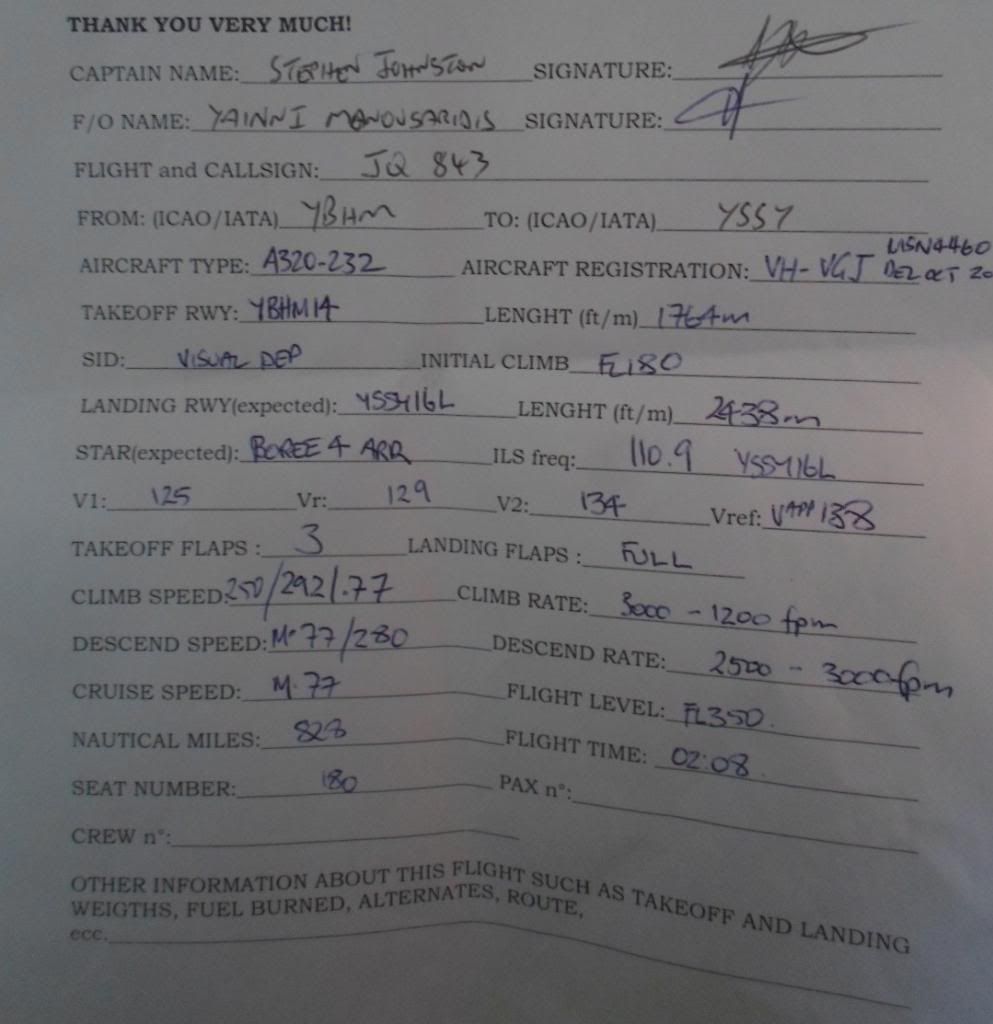 THANK YOU VERY MUCH!
CAPTAIN NAME: STEPHEN JOHNSTON SIGNATURE:
F/O NAME: YAINNI MANOUSARIDIS SIGNATURE:
FLIGHT and CALLSIGN: JQ 843
FROM: (ICAO/IATA) YBHM TO: (ICAO/IATA) YSSY
MSN4460
AIRCRAFT TYPE: A320-232 AIRCRAFT REGISTRATION: VH-VGJ DEL OCT 20
TAKEOFF RWY: YBHM14 LENGHT (ft/m) 1764m
SID: VISUAL DEP INITIAL CLIMB FL180
LANDING RWY(expected): YSSY16L LENGHT (ft/m) 2438m
STAR(expected): BOREE 4 ARR ILS freq: 110.9 YSSY16L
V1: 125 Vr: 129 V2: 134 Vref: VAPP 138
TAKEOFF FLAPS : 3 LANDING FLAPS : FULL
CLIMB SPEED: 250/292/.77 CLIMB RATE: 3000 - 1200 fpm
DESCEND SPEED: M.77/280 DESCEND RATE: 2500 - 3000fpm
CRUISE SPEED: M.77 FLIGHT LEVEL: FL350.
NAUTICAL MILES: 828 FLIGHT TIME: 02:08.
SEAT NUMBER: 180 PAX n°:
CREW n°:
OTHER INFORMATION ABOUT THIS FLIGHT SUCH AS TAKEOFF AND LANDING
WEIGTHS, FUEL BURNED, ALTERNATES, ROUTE,
ecc.